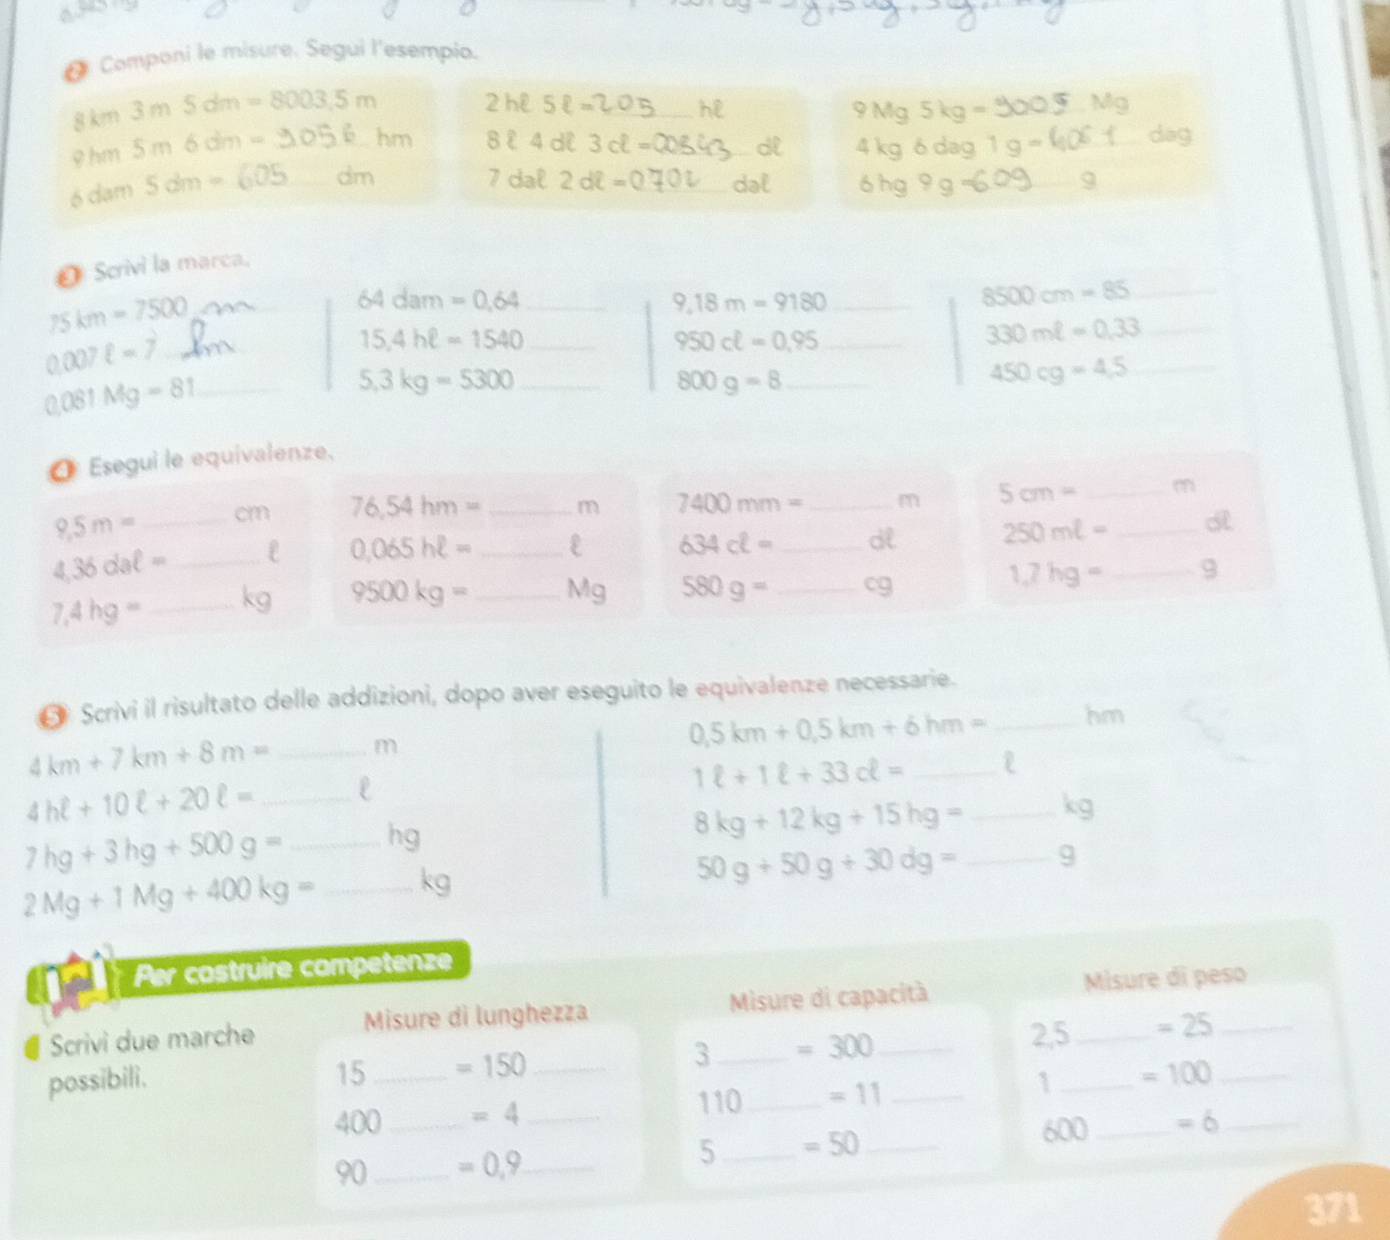 2 Componi le misure. Segui l'esempio.
8 km 3 m 5 dm = 8003,5 m
9 hm 5 m 6 dm = 9056 hm
6 dam 5 dm = 605 dm
2 hℓ 5 ℓ = 205 hℓ
8 ℓ 4 dℓ 3 cℓ = dℓ
7 daℓ 2 dℓ = daℓ
9 Mg 5 kg = 9005 Mg
4 kg 6 dag 1 g = dag
6 hg 9 g = 609 g
3 Scrivi la marca.
75 km = 7500
0,007 ℓ = 7
0,081 Mg = 81
64 dam = 0,64
15,4 hℓ = 1540
5,3 kg = 5300
9,18 m = 9180
950 cℓ = 0,95
800 g = 8
8500 cm = 85
330 mℓ = 0,33
450 cg = 4,5
4 Esegui le equivalenze.
9,5 m = cm
4,36 daℓ = ℓ
7,4 hg = kg
76,54 hm = m
0,065 hℓ = ℓ
9500 kg = Mg
7400 mm = m
634 cℓ = dℓ
580 g = cg
5 cm = m
250 mℓ = dℓ
1,7 hg = g
5 Scrivi il risultato delle addizioni, dopo aver eseguito le equivalenze necessarie.
4 km + 7 km + 8 m = m
4 hℓ + 10 ℓ + 20 ℓ = ℓ
7 hg + 3 hg + 500 g = hg
2 Mg + 1 Mg + 400 kg = kg
0,5 km + 0,5 km + 6 hm = hm
1 ℓ + 1 ℓ + 33 cℓ = ℓ
8 kg + 12 kg + 15 hg = kg
50 g + 50 g + 30 dg = g
Per costruire competenze
Scrivi due marche
possibili.
Misure di lunghezza
15 = 150
400 = 4
90 = 0,9
Misure di capacità
3 = 300
110 = 11
5 = 50
Misure di peso
2,5 = 25
1 = 100
600 = 6
371